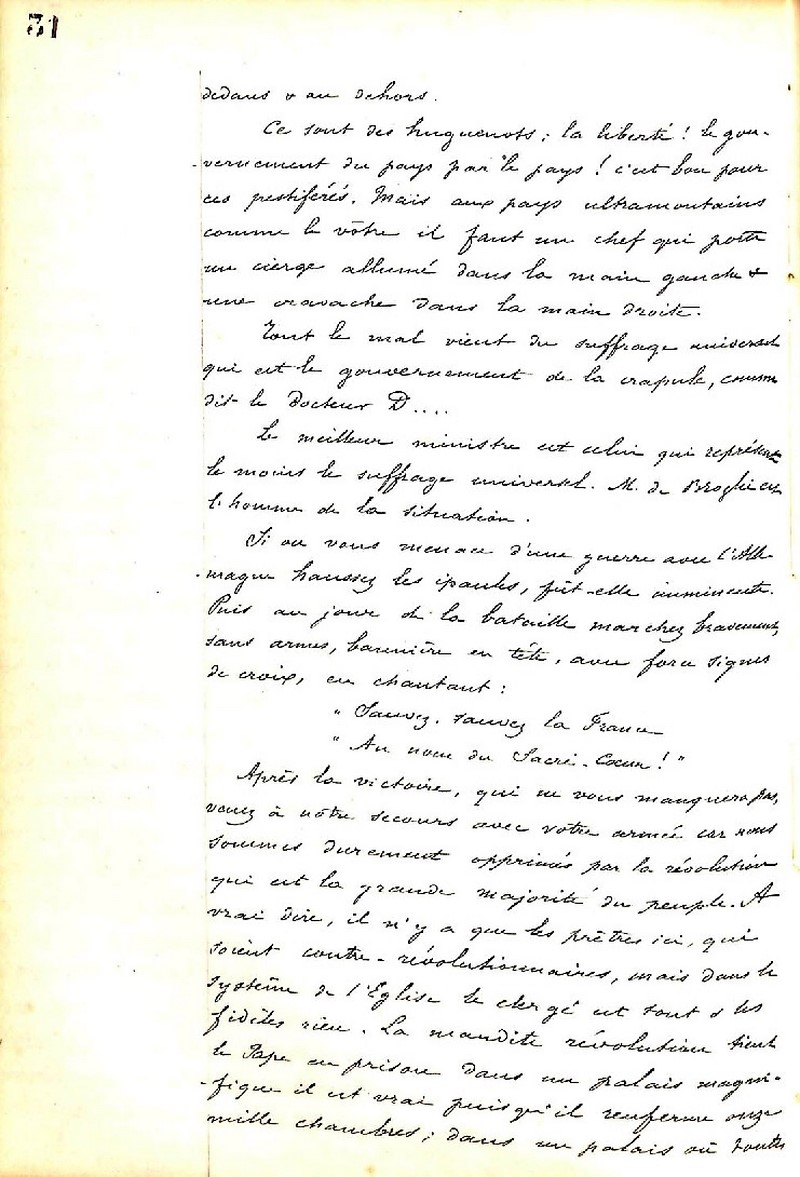 31
dedans & au dehors.
Ce sont des huguenots; la liberté! le gou-
vernement du pays par le pays! c'est bon pour
ces pestiférés. Mais aux pays ultramontains
comme le vôtre il faut un chef qui porte
un cierge allumé dans la main gauche &
une cravache dans la main droite.
Tout le mal vient du suffrage universel
qui est le gouvernement de la crapule, comme
dit le Docteur D....
Le meilleur ministre est celui qui représente
le moins le suffrage universel. M. de Broglie est
l'homme de la situation.
Si on vous menace d'une guerre avec l'Alle-
magne haussez les épaules, fût-elle imminente.
Puis au jour de la bataille marchez bravement,
sans armes, bannière en tête, avec force signes
de croix, en chantant:
"Sauvez, sauvez la France
"Au nom du Sacré-Cœur!"
Après la victoire, qui ne vous manquera pas,
venez à nôtre secours avec votre armée car nous
sommes durement opprimés par la révolution
qui est la grande majorité du peuple. A
vrai dire, il n'y a que les prêtres ici, qui
soient contre-révolutionnaires, mais dans le
système de l'Eglise le clergé est tout & les
fidèles rien. La maudite révolution tient
le Pape en prison dans un palais magni-
fique il est vrai puisqu'il renferme onze
mille chambres; dans un palais où toutes